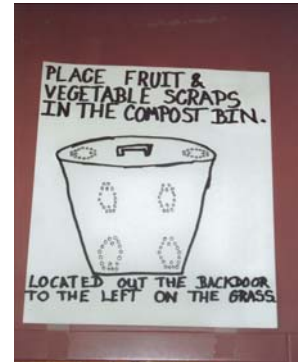 PLACE FRUIT &
VEGETABLE SCRAPS
IN THE COMPOST BIN.
LOCATED OUT THE BACKDOOR
TO THE LEFT ON THE GRASS